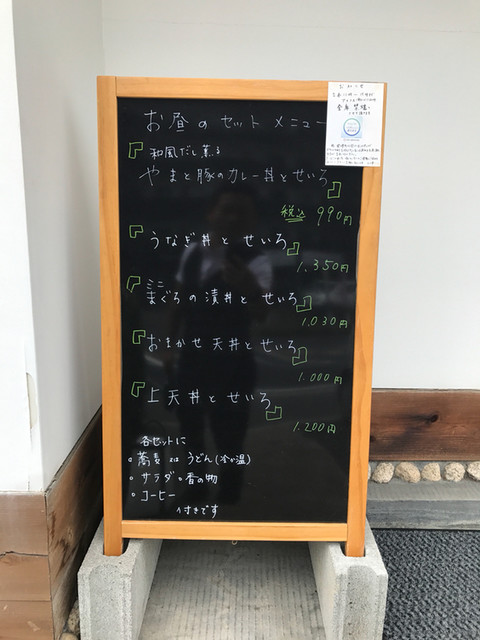 お昼のセットメニュー
『和風だし薫る
やまと豚のカレー丼とせいろ』
税込 990円
『うなぎ丼とせいろ』
1,350円
『ミニ
まぐろの漬丼とせいろ』
1,030円
『おまかせ天丼とせいろ』
1,000円
『上天丼とせいろ』
1,200円
各セットに
○蕎麦又はうどん(冷か温)
○サラダ ○香の物
○コーヒー
付きです
おしらせ
全席禁煙